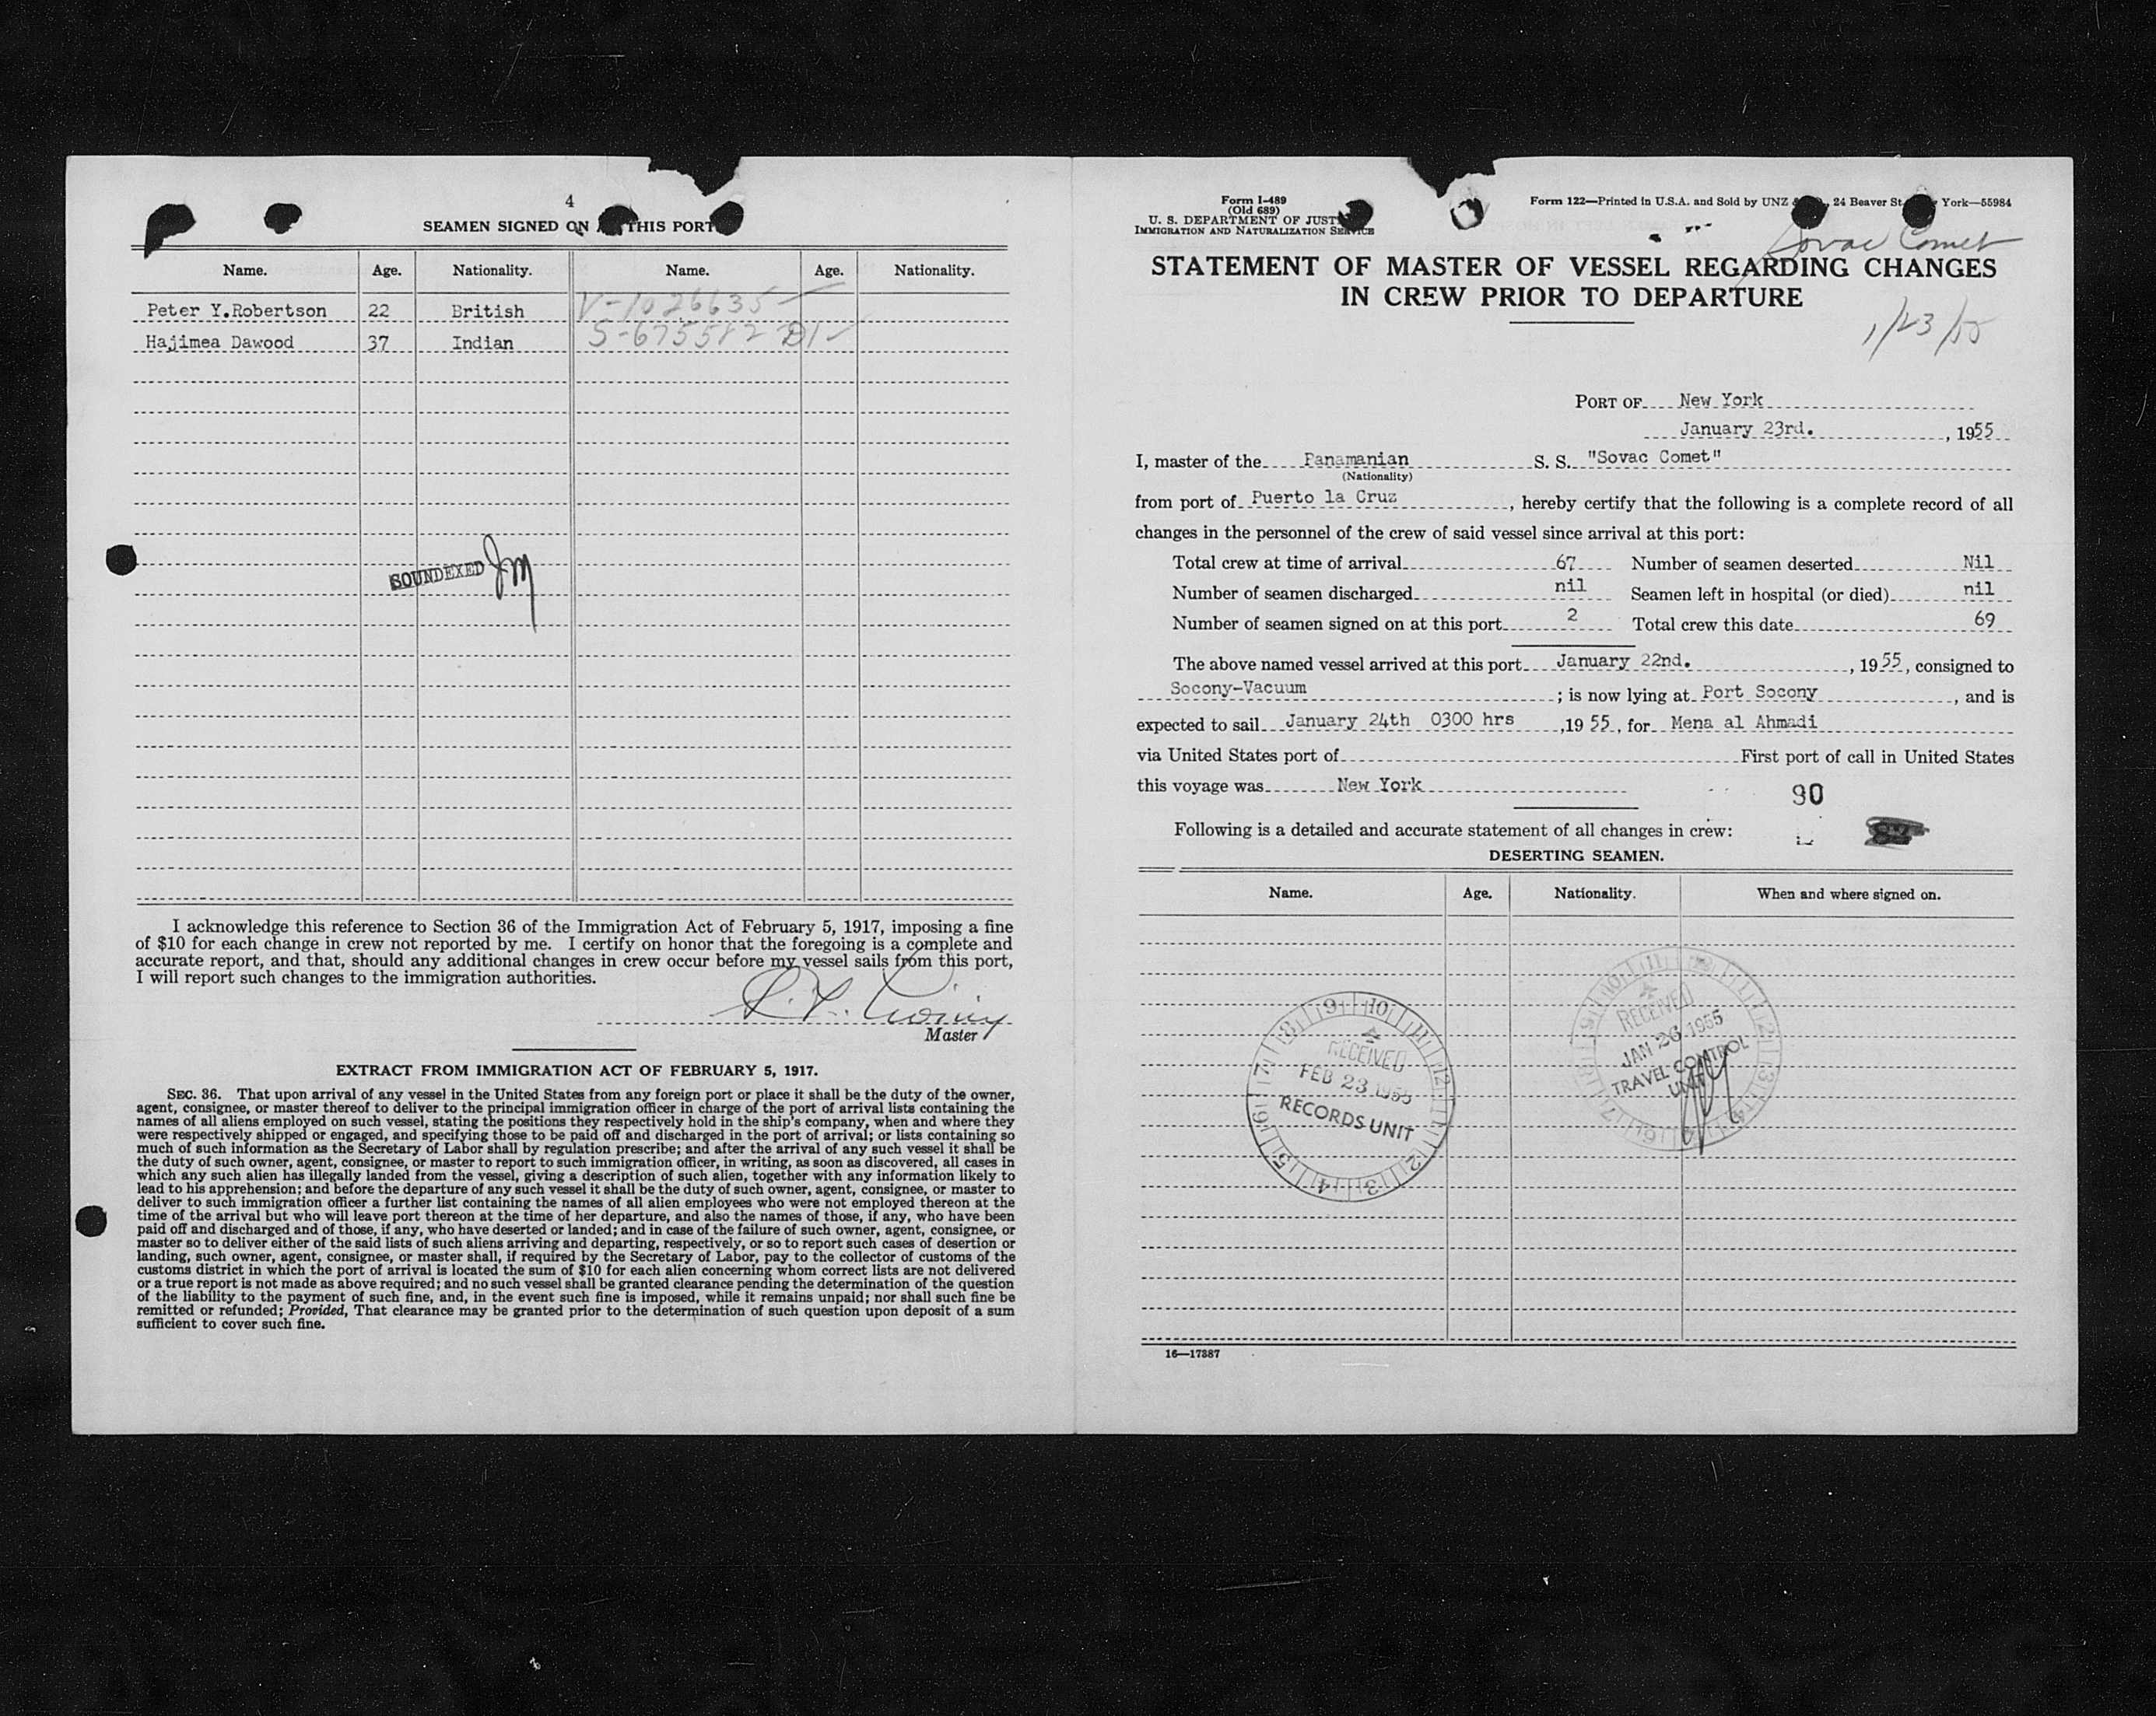 4
SEAMEN SIGNED ON THIS PORT
Name. Age. Nationality. Name. Age. Nationality.
Peter Y.Robertson 22 British V-1026635
Hajimea Dawood 37 Indian S-675582 D1
SOUNDEXED JM
I acknowledge this reference to Section 36 of the Immigration Act of February 5, 1917, imposing a fine
of $10 for each change in crew not reported by me. I certify on honor that the foregoing is a complete and
accurate report, and that, should any additional changes in crew occur before my vessel sails from this port,
I will report such changes to the immigration authorities.
Master
EXTRACT FROM IMMIGRATION ACT OF FEBRUARY 5, 1917.
SEC. 36. That upon arrival of any vessel in the United States from any foreign port or place it shall be the duty of the owner,
agent, consignee, or master thereof to deliver to the principal immigration officer in charge of the port of arrival lists containing the
names of all aliens employed on such vessel, stating the positions they respectively hold in the ship's company, when and where they
were respectively shipped or engaged, and specifying those to be paid off and discharged in the port of arrival; or lists containing so
much of such information as the Secretary of Labor shall by regulation prescribe; and after the arrival of any such vessel it shall be
the duty of such owner, agent, consignee, or master to report to such immigration officer, in writing, as soon as discovered, all cases in
which any such alien has illegally landed from the vessel, giving a description of such alien, together with any information likely to
lead to his apprehension; and before the departure of any such vessel it shall be the duty of such owner, agent, consignee, or master to
deliver to such immigration officer a further list containing the names of all alien employees who were not employed thereon at the
time of the arrival but who will leave port thereon at the time of her departure, and also the names of those, if any, who have been
paid off and discharged and of those, if any, who have deserted or landed; and in case of the failure of such owner, agent, consignee, or
master so to deliver either of the said lists of such aliens arriving and departing, respectively, or so to report such cases of desertion or
landing, such owner, agent, consignee, or master shall, if required by the Secretary of Labor, pay to the collector of customs of the
customs district in which the port of arrival is located the sum of $10 for each alien concerning whom correct lists are not delivered
or a true report is not made as above required; and no such vessel shall be granted clearance pending the determination of the question
of the liability to the payment of such fine, and, in the event such fine is imposed, while it remains unpaid; nor shall such fine be
remitted or refunded; Provided, That clearance may be granted prior to the determination of such question upon deposit of a sum
sufficient to cover such fine.
Form I-489
(Old 689)
U. S. DEPARTMENT OF JUST
IMMIGRATION AND NATURALIZATION SERVICE
Form 122—Printed in U.S.A. and Sold by UNZ &, 24 Beaver St. York—55984
Sovac Comet
STATEMENT OF MASTER OF VESSEL REGARDING CHANGES
IN CREW PRIOR TO DEPARTURE
1/23/55
PORT OF New York
January 23rd., 1955
I, master of the Panamanian S. S. "Sovac Comet"
(Nationality)
from port of Puerto la Cruz, hereby certify that the following is a complete record of all
changes in the personnel of the crew of said vessel since arrival at this port:
Total crew at time of arrival 67 Number of seamen deserted Nil
Number of seamen discharged nil Seamen left in hospital (or died) nil
Number of seamen signed on at this port 2 Total crew this date 69
The above named vessel arrived at this port January 22nd., 1955, consigned to
Socony-Vacuum; is now lying at Port Socony, and is
expected to sail January 24th 0300 hrs ,1955, for Mena al Ahmadi
via United States port of First port of call in United States
this voyage was New York
90
Following is a detailed and accurate statement of all changes in crew:
DESERTING SEAMEN.
Name. Age. Nationality. When and where signed on.
RECEIVED
JAN 26 1955
TRAVEL CONTROL
UNIT
RECEIVED
FEB 23 1955
RECORDS UNIT
16—17387